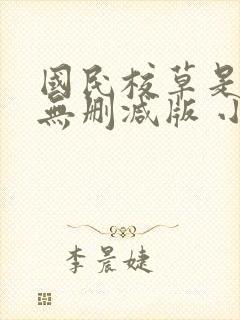 國民校草是
無刪減版 小
李晨婕